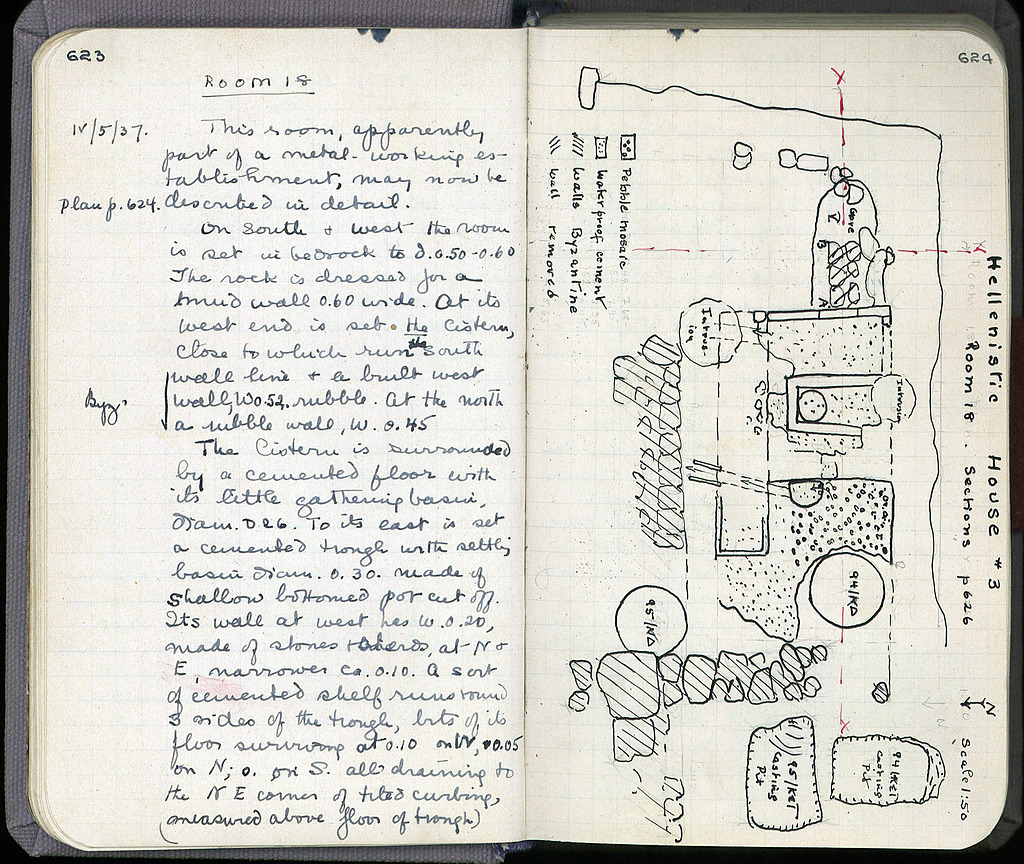 623
ROOM 18
IV/5/37. This room, apparently
part of a metal-working es-
tablishment, may now be
Plan p. 624. described in detail.
On South + west the room
is set in bedrock to d. 0.50-0.60
The rock is dressed for a
mud wall 0.60 wide. At its
west end is set the Cistern,
close to which run the South
wall line + a built west
Byz. wall, W 0.52, rubble. At the north
a rubble wall, W. 0.45
The Cistern is surrounded
by a cemented floor with
its little gathering basin,
diam. 0.26. To its east is set
a cemented trough with settlg
basin diam. 0.30. made of
shallow bottomed pot cut off.
Its wall at west has W. 0.20,
made of stones + sherds, at N +
E, narrower ca. 0.10. A sort
of cemented shelf runs round
3 sides of the trough, bits of its
floor surviving at 0.10 on W, 0.05
on N; 0. on S. all draining to
the N E corner of tiled curbing,
(measured above floor of trough)
624
Hellenistic House #3
Room 18. Sections p 626
N
Scale 1:50
Pebble mosaic
Waterproof cement
Walls Byzantine
Wall removed
X
X
X
Cove
V
B
A
Intrus-
ion
Intrusion
94/ND
95/ND
94/KET
Casting
Pit
95/KET
Casting
Pit